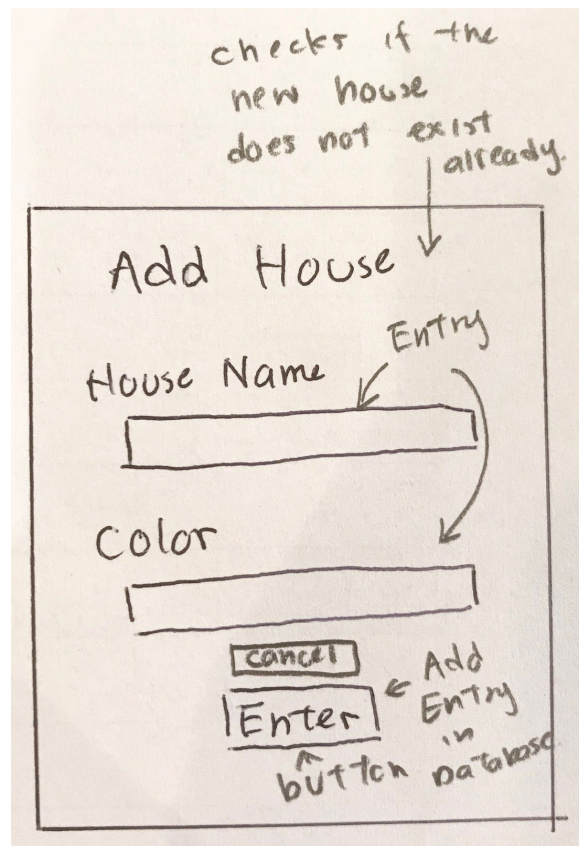 checks if the
new house
does not exist
already.
Add House
Entry
House Name
Color
cancel
Enter
Add
Entry
in
Database.
button